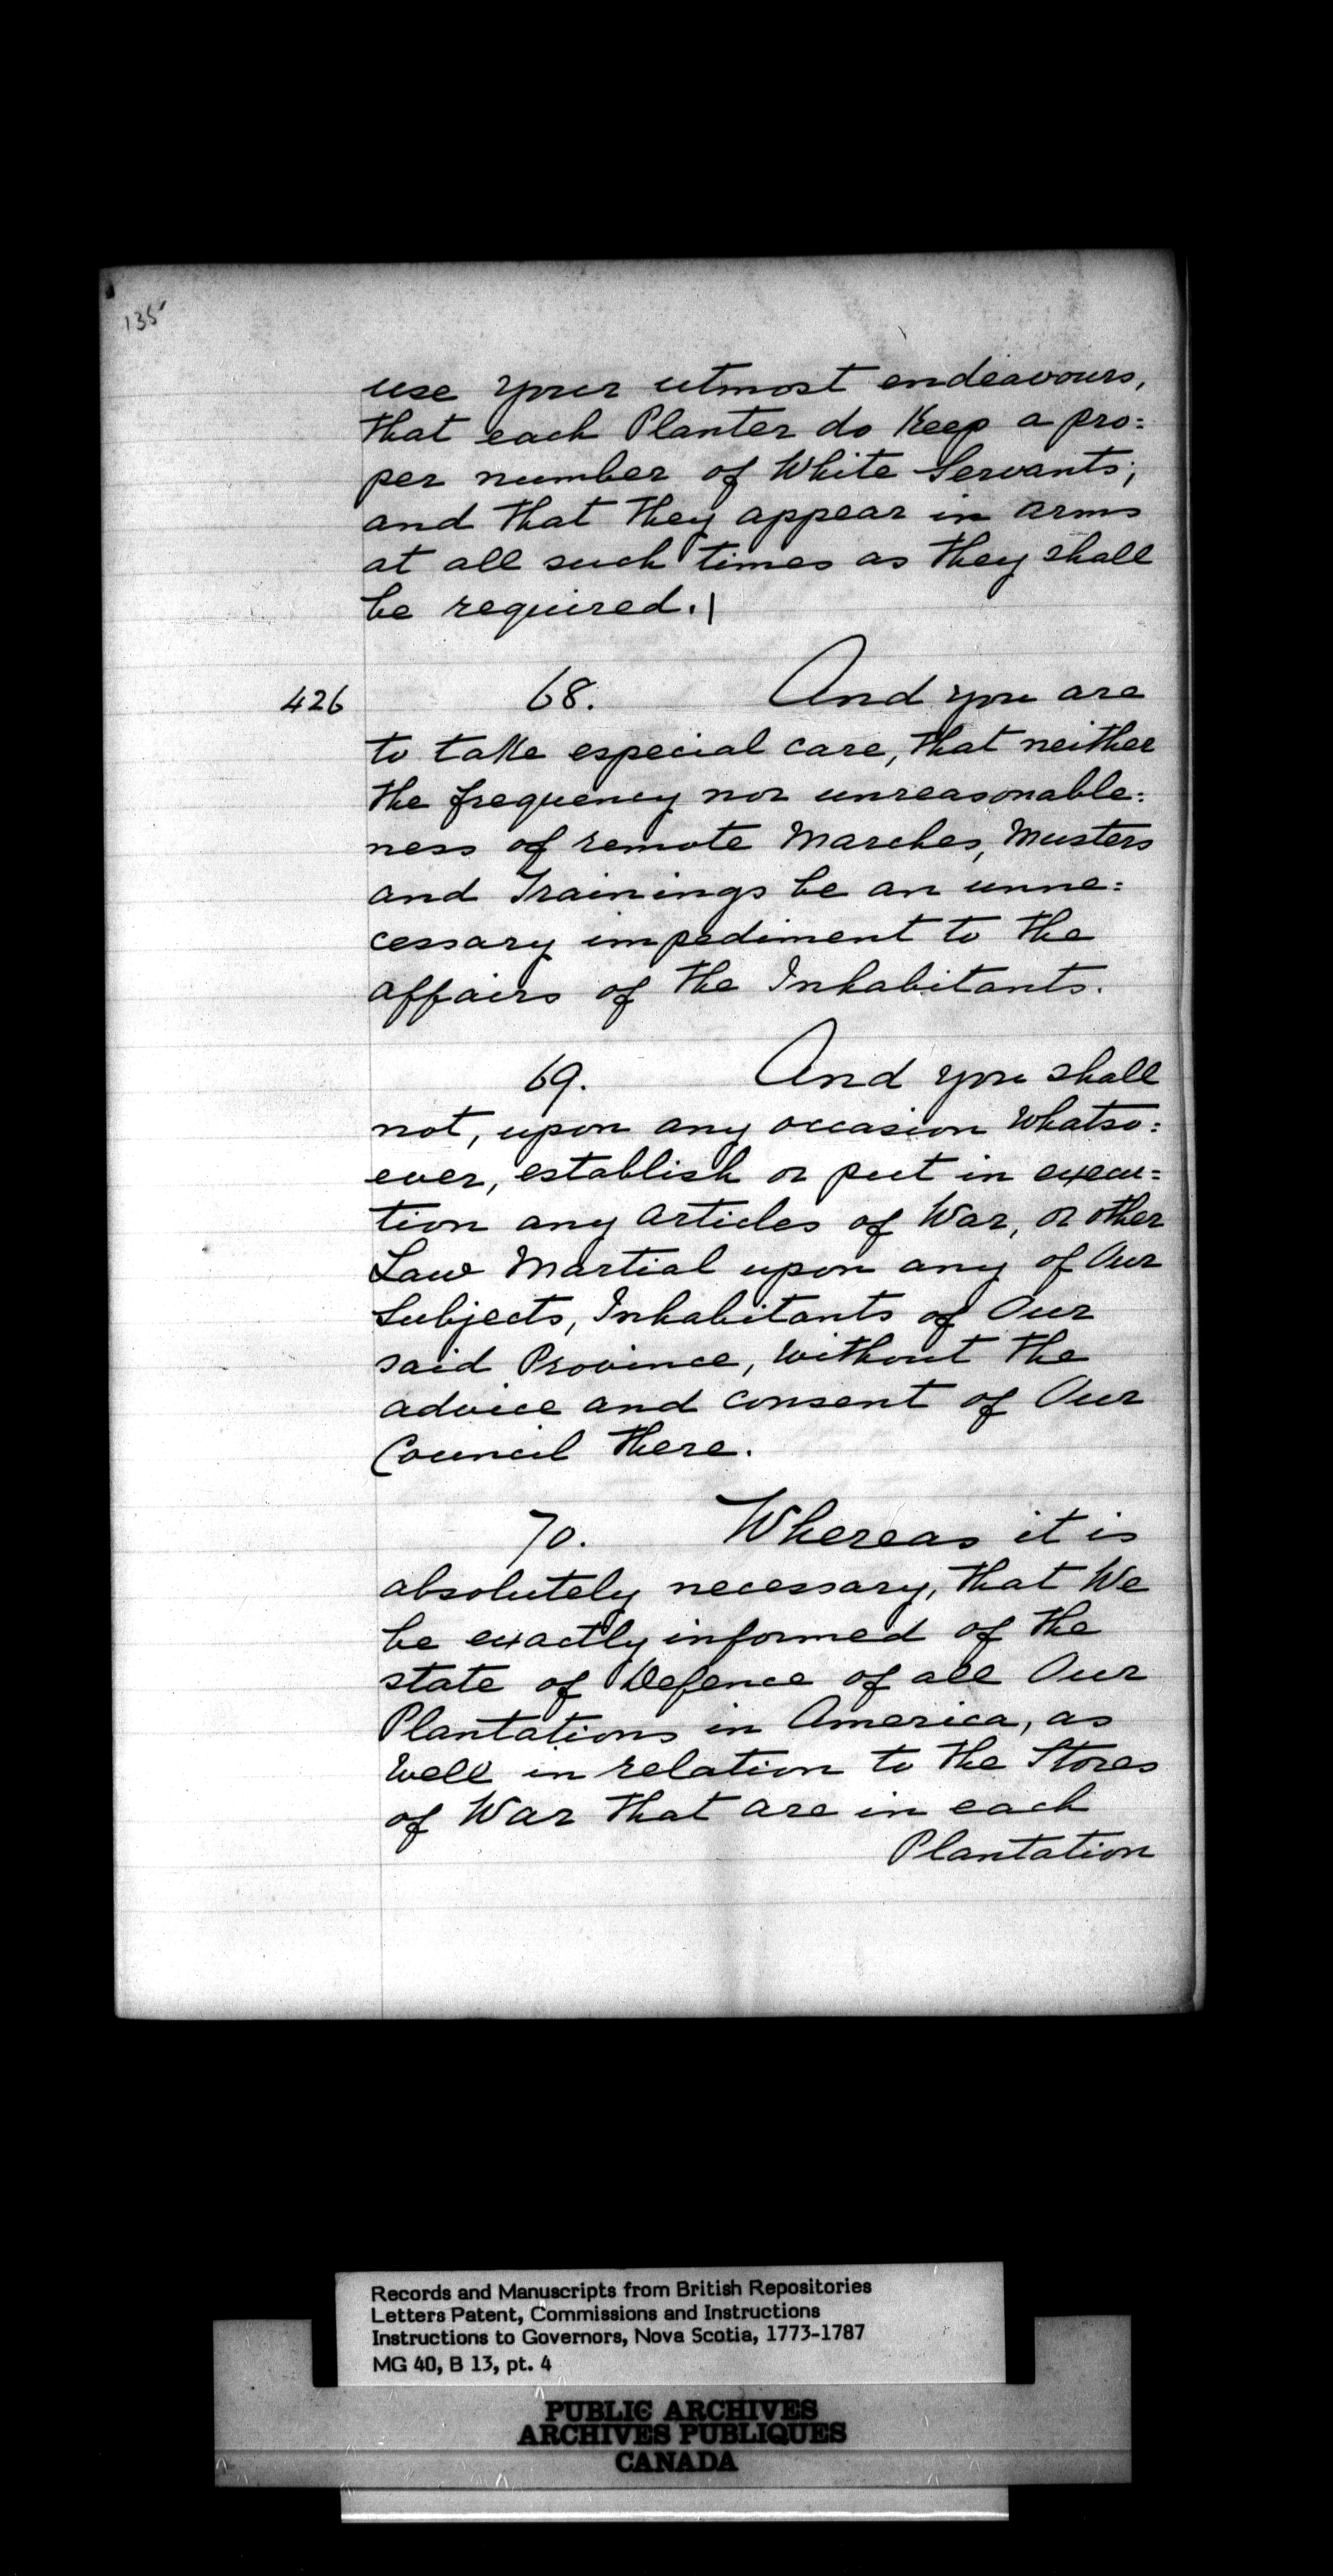 135
use your utmost endeavours,
that each Planter do Keep a pro=
per number of White Servants;
and that they appear in arms
at all such times as they shall
be required.|
426 68. And you are
to take especial care, that neither
the frequency nor unreasonable=
ness of remote Marches, Musters
and Trainings be an unne=
cessary impediment to the
affairs of the Inhabitants.
69. And you shall
not, upon any occasion Whatso=
ever, establish or put in execu=
tion any articles of War, or other
Law Martial upon any of Our
Subjects, Inhabitants of Our
said Province, without the
advice and consent of Our
Council there.
70. Whereas it is
absolutely necessary, that We
be exactly informed of the
state of Defence of all Our
Plantations in America, as
Well in relation to the Stores
of War that are in each
Plantation
Records and Manuscripts from British Repositories
Letters Patent, Commissions and Instructions
Instructions to Governors, Nova Scotia, 1773-1787
MG 40, B 13, pt. 4
PUBLIC ARCHIVES
ARCHIVES PUBLIQUES
CANADA